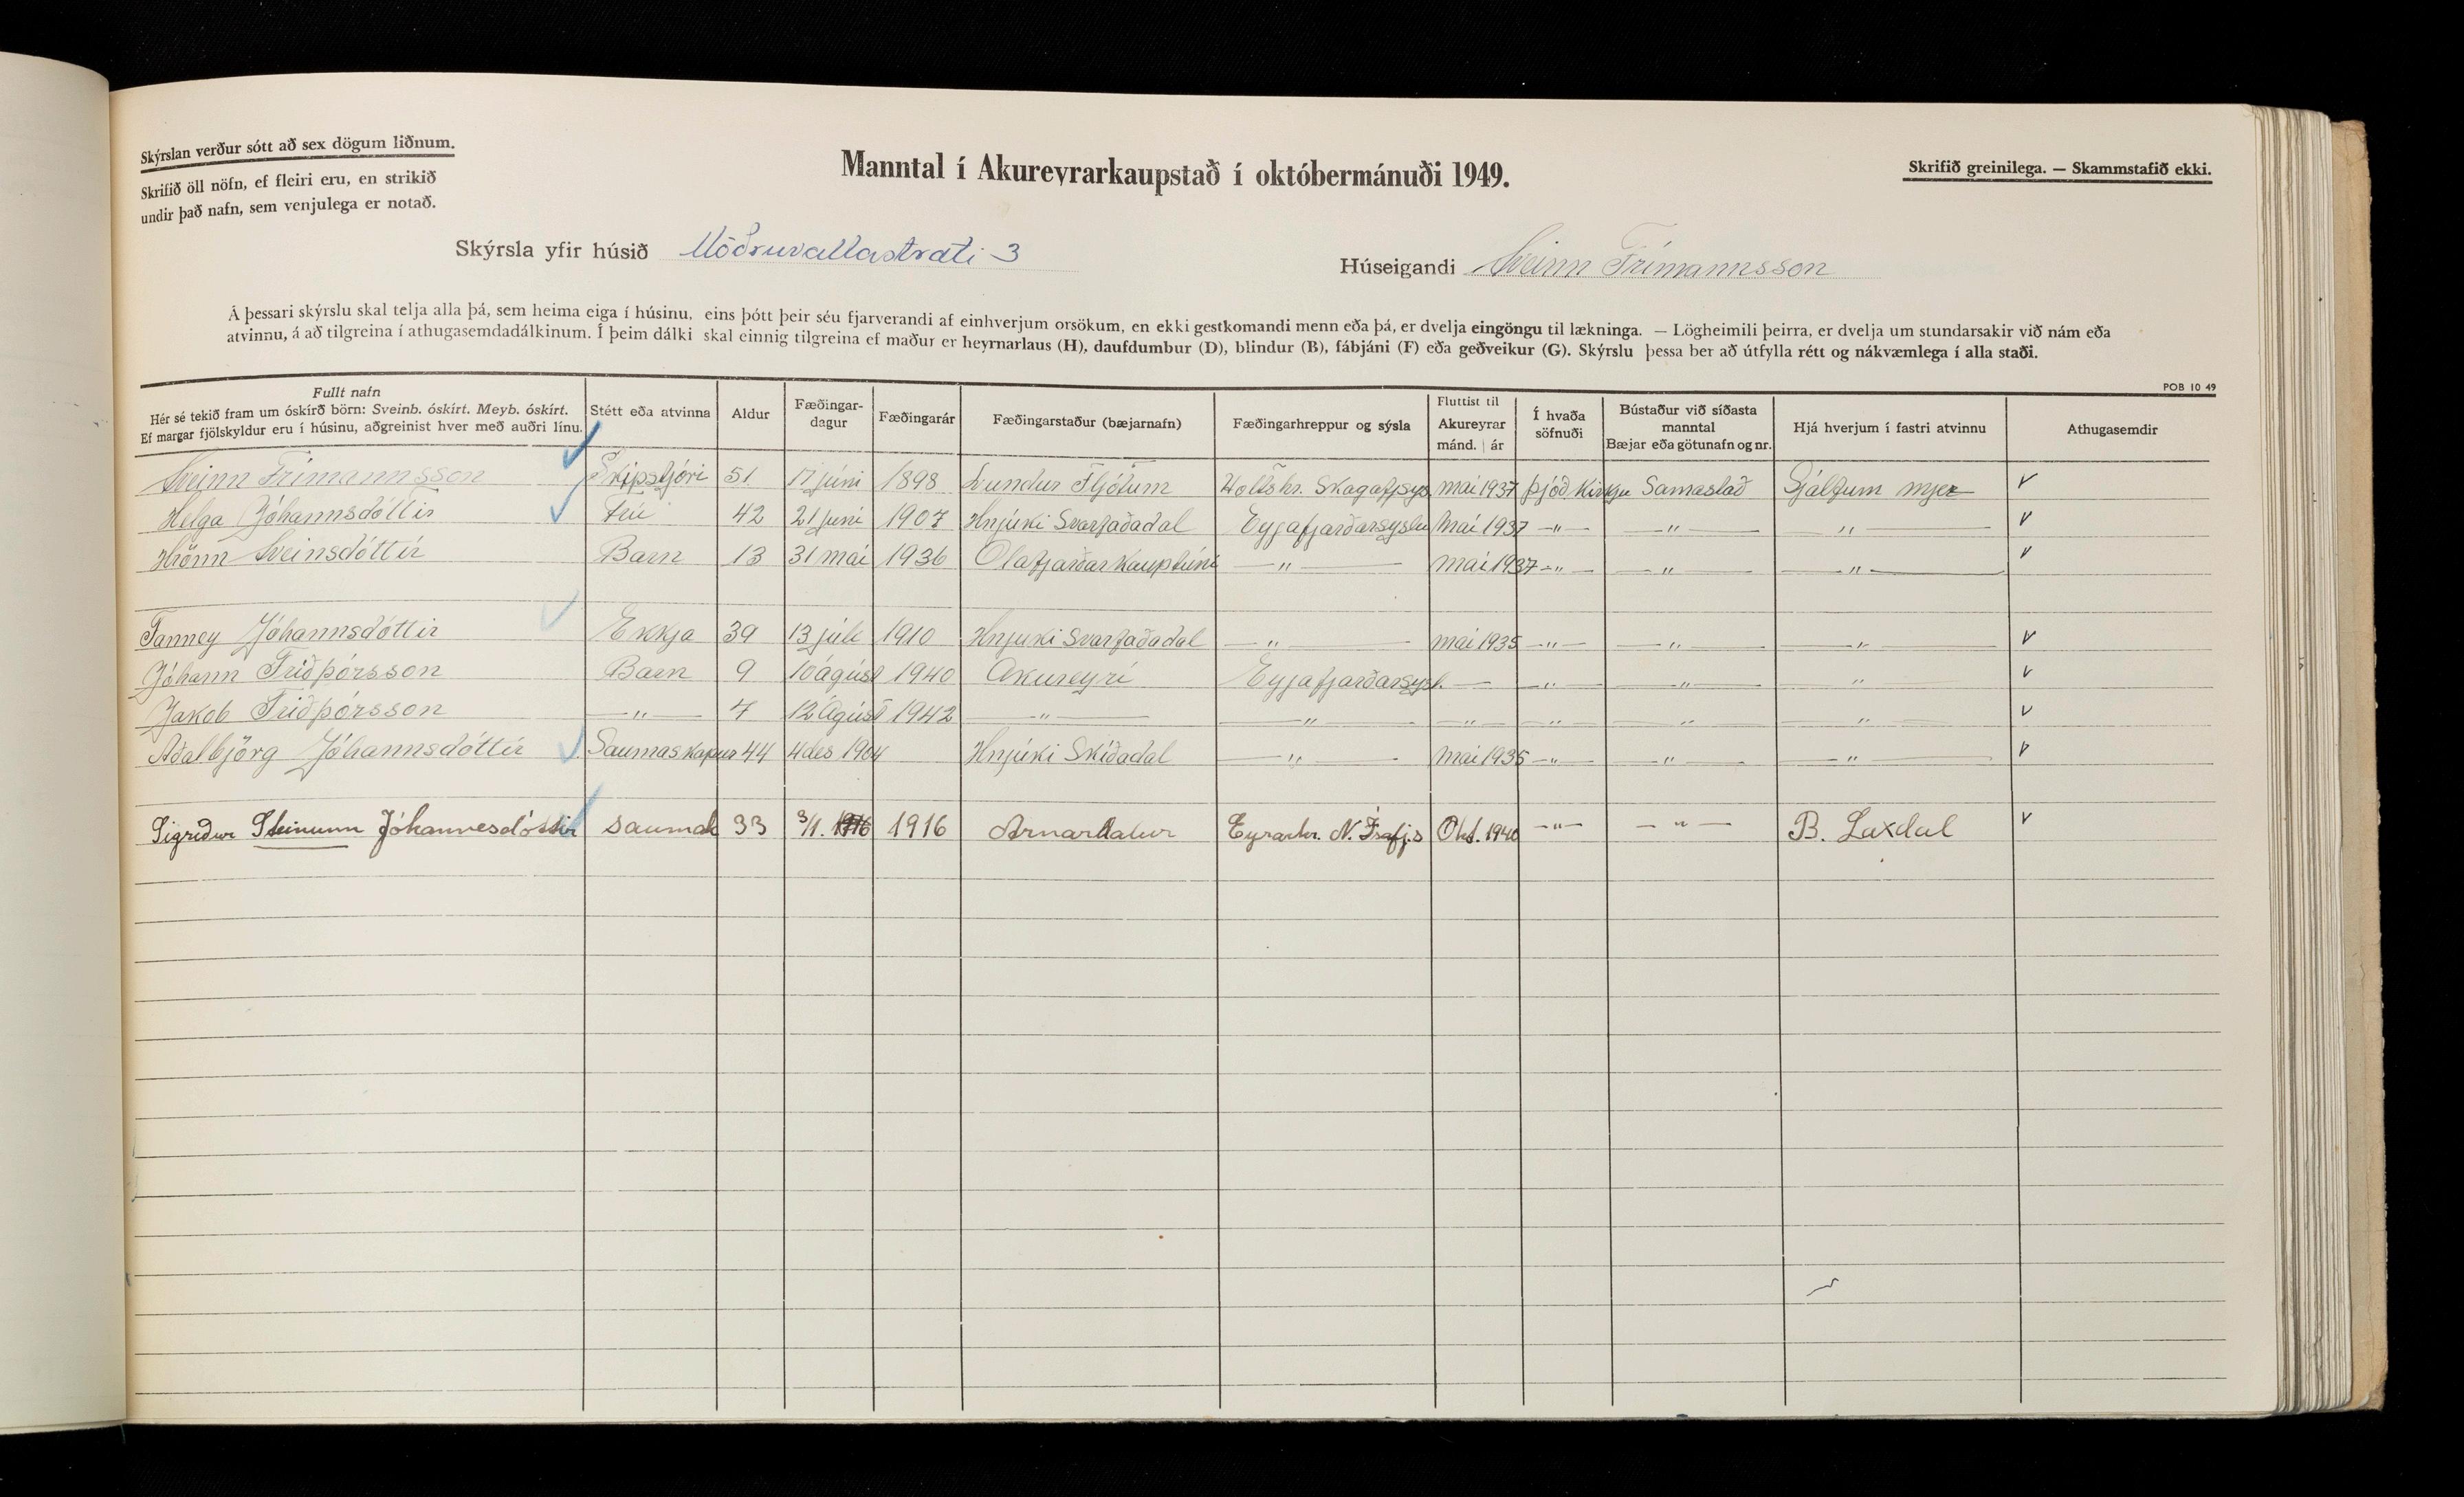 Skýrslan verður sótt að sex dögum liðnum.
Skrifið öll nöfn, ef fleiri eru, en strikið
undir það nafn, sem venjulega er notað.
Manntal í Akureyrarkaupstað í októbermánuði 1949.
Skrifið greinilega. — Skammstafið ekki.
Skýrsla yfir húsið Möðruvallastræti 3
Húseigandi Sveinn Frímannsson
Á þessari skýrslu skal telja alla þá, sem heima eiga í húsinu, eins þótt þeir séu fjarverandi af einhverjum orsökum, en ekki gestkomandi menn eða þá, er dvelja eingöngu til lækninga. — Lögheimili þeirra, er dvelja um stundarsakir við nám eða
atvinnu, á að tilgreina í athugasemdadálkinum. Í þeim dálki skal einnig tilgreina ef maður er heyrnarlaus (H), daufdumbur (D), blindur (B), fábjáni (F) eða geðveikur (G). Skýrslu þessa ber að útfylla rétt og nákvæmlega í alla staði.
POB 10 49
Fullt nafn
Hér sé tekið fram um óskírð börn: Sveinb. óskírt. Meyb. óskírt.
Ef margar fjölskyldur eru í húsinu, aðgreinist hver með auðri línu.
Stétt eða atvinna
Aldur
Fæðingar-
dagur
Fæðingarár
Fæðingarstaður (bæjarnafn)
Fæðingarhreppur og sýsla
Fluttist til
Akureyrar
mánd. | ár
Í hvaða
söfnuði
Bústaður við síðasta
manntal
Bæjar eða götunafn og nr.
Hjá hverjum í fastri atvinnu
Athugasemdir
Sveinn Frímannsson Skipstjóri 51 17 júni 1898 Lundur Fljótum Holtshr. Skagafjsys. mai 1937 þjóð Kirkju Samastað Sjálfum mjer v
Helga Jóhannsdóttir Frú 42 21 juni 1907 Hnjúki Svarfaðadal Eyjafjarðarsyslu Mai 1937 —"— —"— —"— v
Hrönn Sveinsdóttir Barn 13 31 mai 1936 Olafjarðar Kauptúni —"— mai 1937 —"— —"— —"— v
Fanney Jóhannsdóttir Ekkja 39 13 júli 1910 Hnjuki Svarfaðadal —"— mai 1935 —"— —"— —"— v
Jóhann Friðþórsson Barn 9 10 ágúst 1940 Akureyri Eyjafjarðarsysl. — —"— —"— —"— v
Jakob Friðþórsson —"— 7 12 Agúst 1942 —"— —"— —"— —"— —"— —"— v
Aðalbjörg Jóhannsdóttir Saumaskapur 44 4 des 1904 Hnjúki Skíðadal —"— Mai 1935 —"— —"— —"— v
Sigriður Steinunn Jóhannesdóttir saumak 33 3/1. 1916 1916 Arnardalur Eyrarhr. N. Ísafj.s Okt. 1940 —"— —"— B. Laxdal v